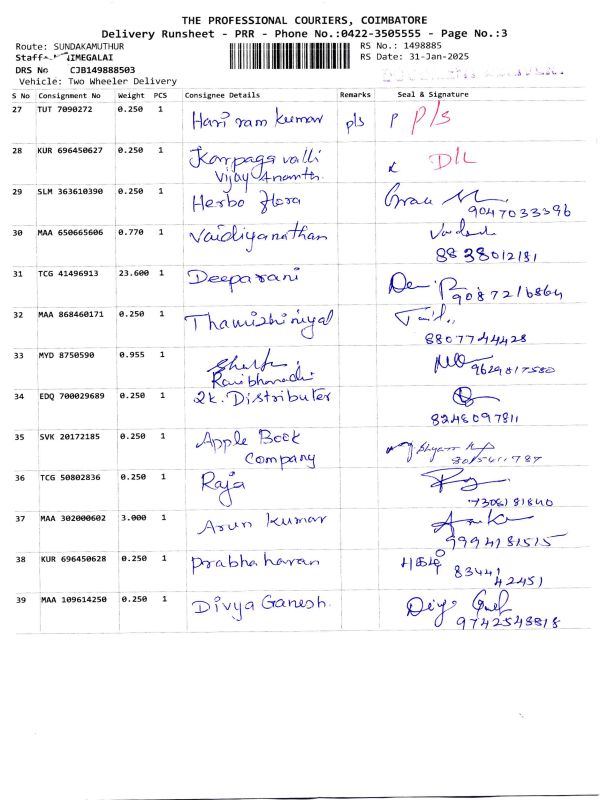 THE PROFESSIONAL COURIERS, COIMBATORE
Delivery Runsheet - PRR - Phone No.:0422-3505555 - Page No.:3
Route: SUNDAKAMUTHUR
RS No.: 1498885
Staff IMEGALAI
RS Date: 31-Jan-2025
DRS No CJB149888503
Vehicle: Two Wheeler Delivery
S No Consignment No Weight PCS Consignee Details Remarks Seal & Signature
27 TUT 7090272 0.250 1 Hari ram kumar p/s P P/s
28 KUR 696450627 0.250 1 Karpaga valli D/L
Vijay Ananth.
29 SLM 363610390 0.250 1 Herbo flora
9047033396
30 MAA 650665606 0.770 1 Vaidiyanathan
8838012181
31 TCG 41496913 23.600 1 Deeparani
9087216864
32 MAA 868460171 0.250 1 Thamizhiniyal
8807744428
33 MYD 8750590 0.955 1
9629817580
34 EDQ 700029689 0.250 1 2k. Distributer
8248097811
35 SVK 20172185 0.250 1 Apple Book
Company
36 TCG 50802836 0.250 1 Raja
7306181840
37 MAA 302000602 3.000 1 Arun kumar
9994181515
38 KUR 696450628 0.250 1 Prabhaharan
83441
42451
39 MAA 109614250 0.250 1 Divya Ganesh.
9742548818